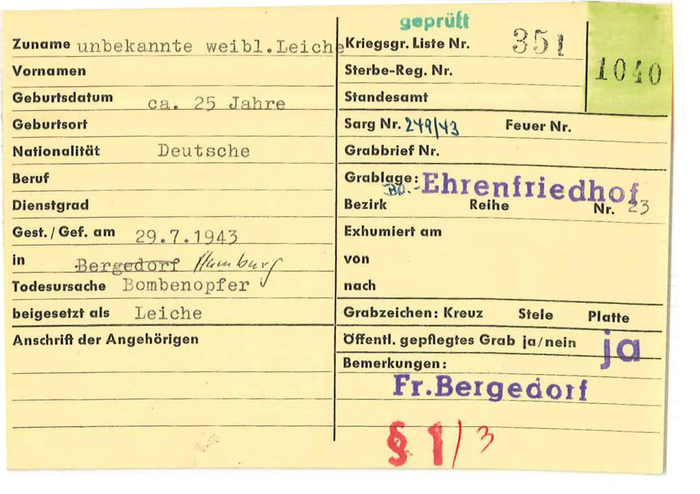 geprüft
Zuname unbekannte weibl.Leiche
Vornamen
Geburtsdatum ca. 25 Jahre
Geburtsort
Nationalität Deutsche
Beruf
Dienstgrad
Gest./Gef. am 29.7.1943
in Bergedorf Hamburg
Todesursache Bombenopfer
beigesetzt als Leiche
Anschrift der Angehörigen
Kriegsgr. Liste Nr. 351
1040
Sterbe-Reg. Nr.
Standesamt
Sarg Nr. 249/43 Feuer Nr.
Grabbrief Nr.
Grablage: Ehrenfriedhof
Bezirk Reihe Nr. 23
Exhumiert am
von
nach
Grabzeichen: Kreuz Stele Platte
Öffentl. gepflegtes Grab ja/nein ja
Bemerkungen:
Fr.Bergedorf
§ 1/3